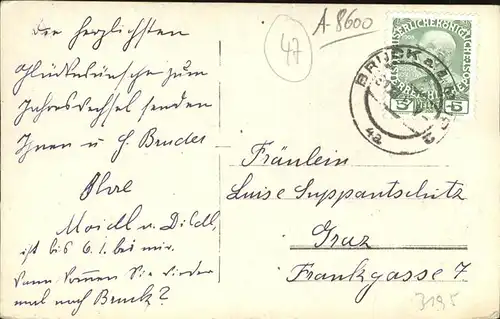 Die herzlichsten
Glückwünsche zum
Jahreswechsel senden
Ihnen u. H. Bruder
Ihre
Moidl u. Dildl,
ist bis 6./1. bei mir.
Wann kommen Sie wieder
mal nach Bruck?
47
A-8600
KAISERLICHE KÖNIGLICHE
5 5
BRUCK a. d.
4a
Fräulein
Luise Suppantschitz
Graz
Frankgasse 7
3195